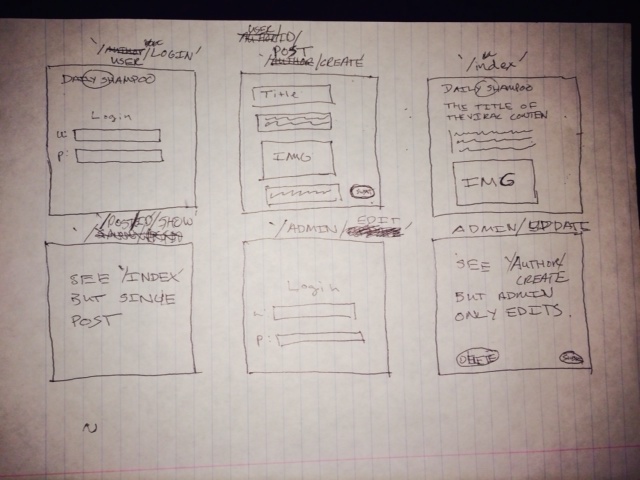 /LOGIN'
USER
DAILY SHAMPOO
Login
u:
p:
USER/
ID/
POST
/CREATE
Title
IMG
'/index'
DAILY SHAMPOO
THE TITLE OF
THE VIRAL CONTEN
IMG
/POST/ID/SHOW
SEE '/INDEX'
BUT SINGLE
POST
'/ADMIN/EDIT
Login
u:
p:
ADMIN/UPDATE
SEE '/AUTHOR/
CREATE
BUT ADMIN
ONLY EDITS.
DELETE
N